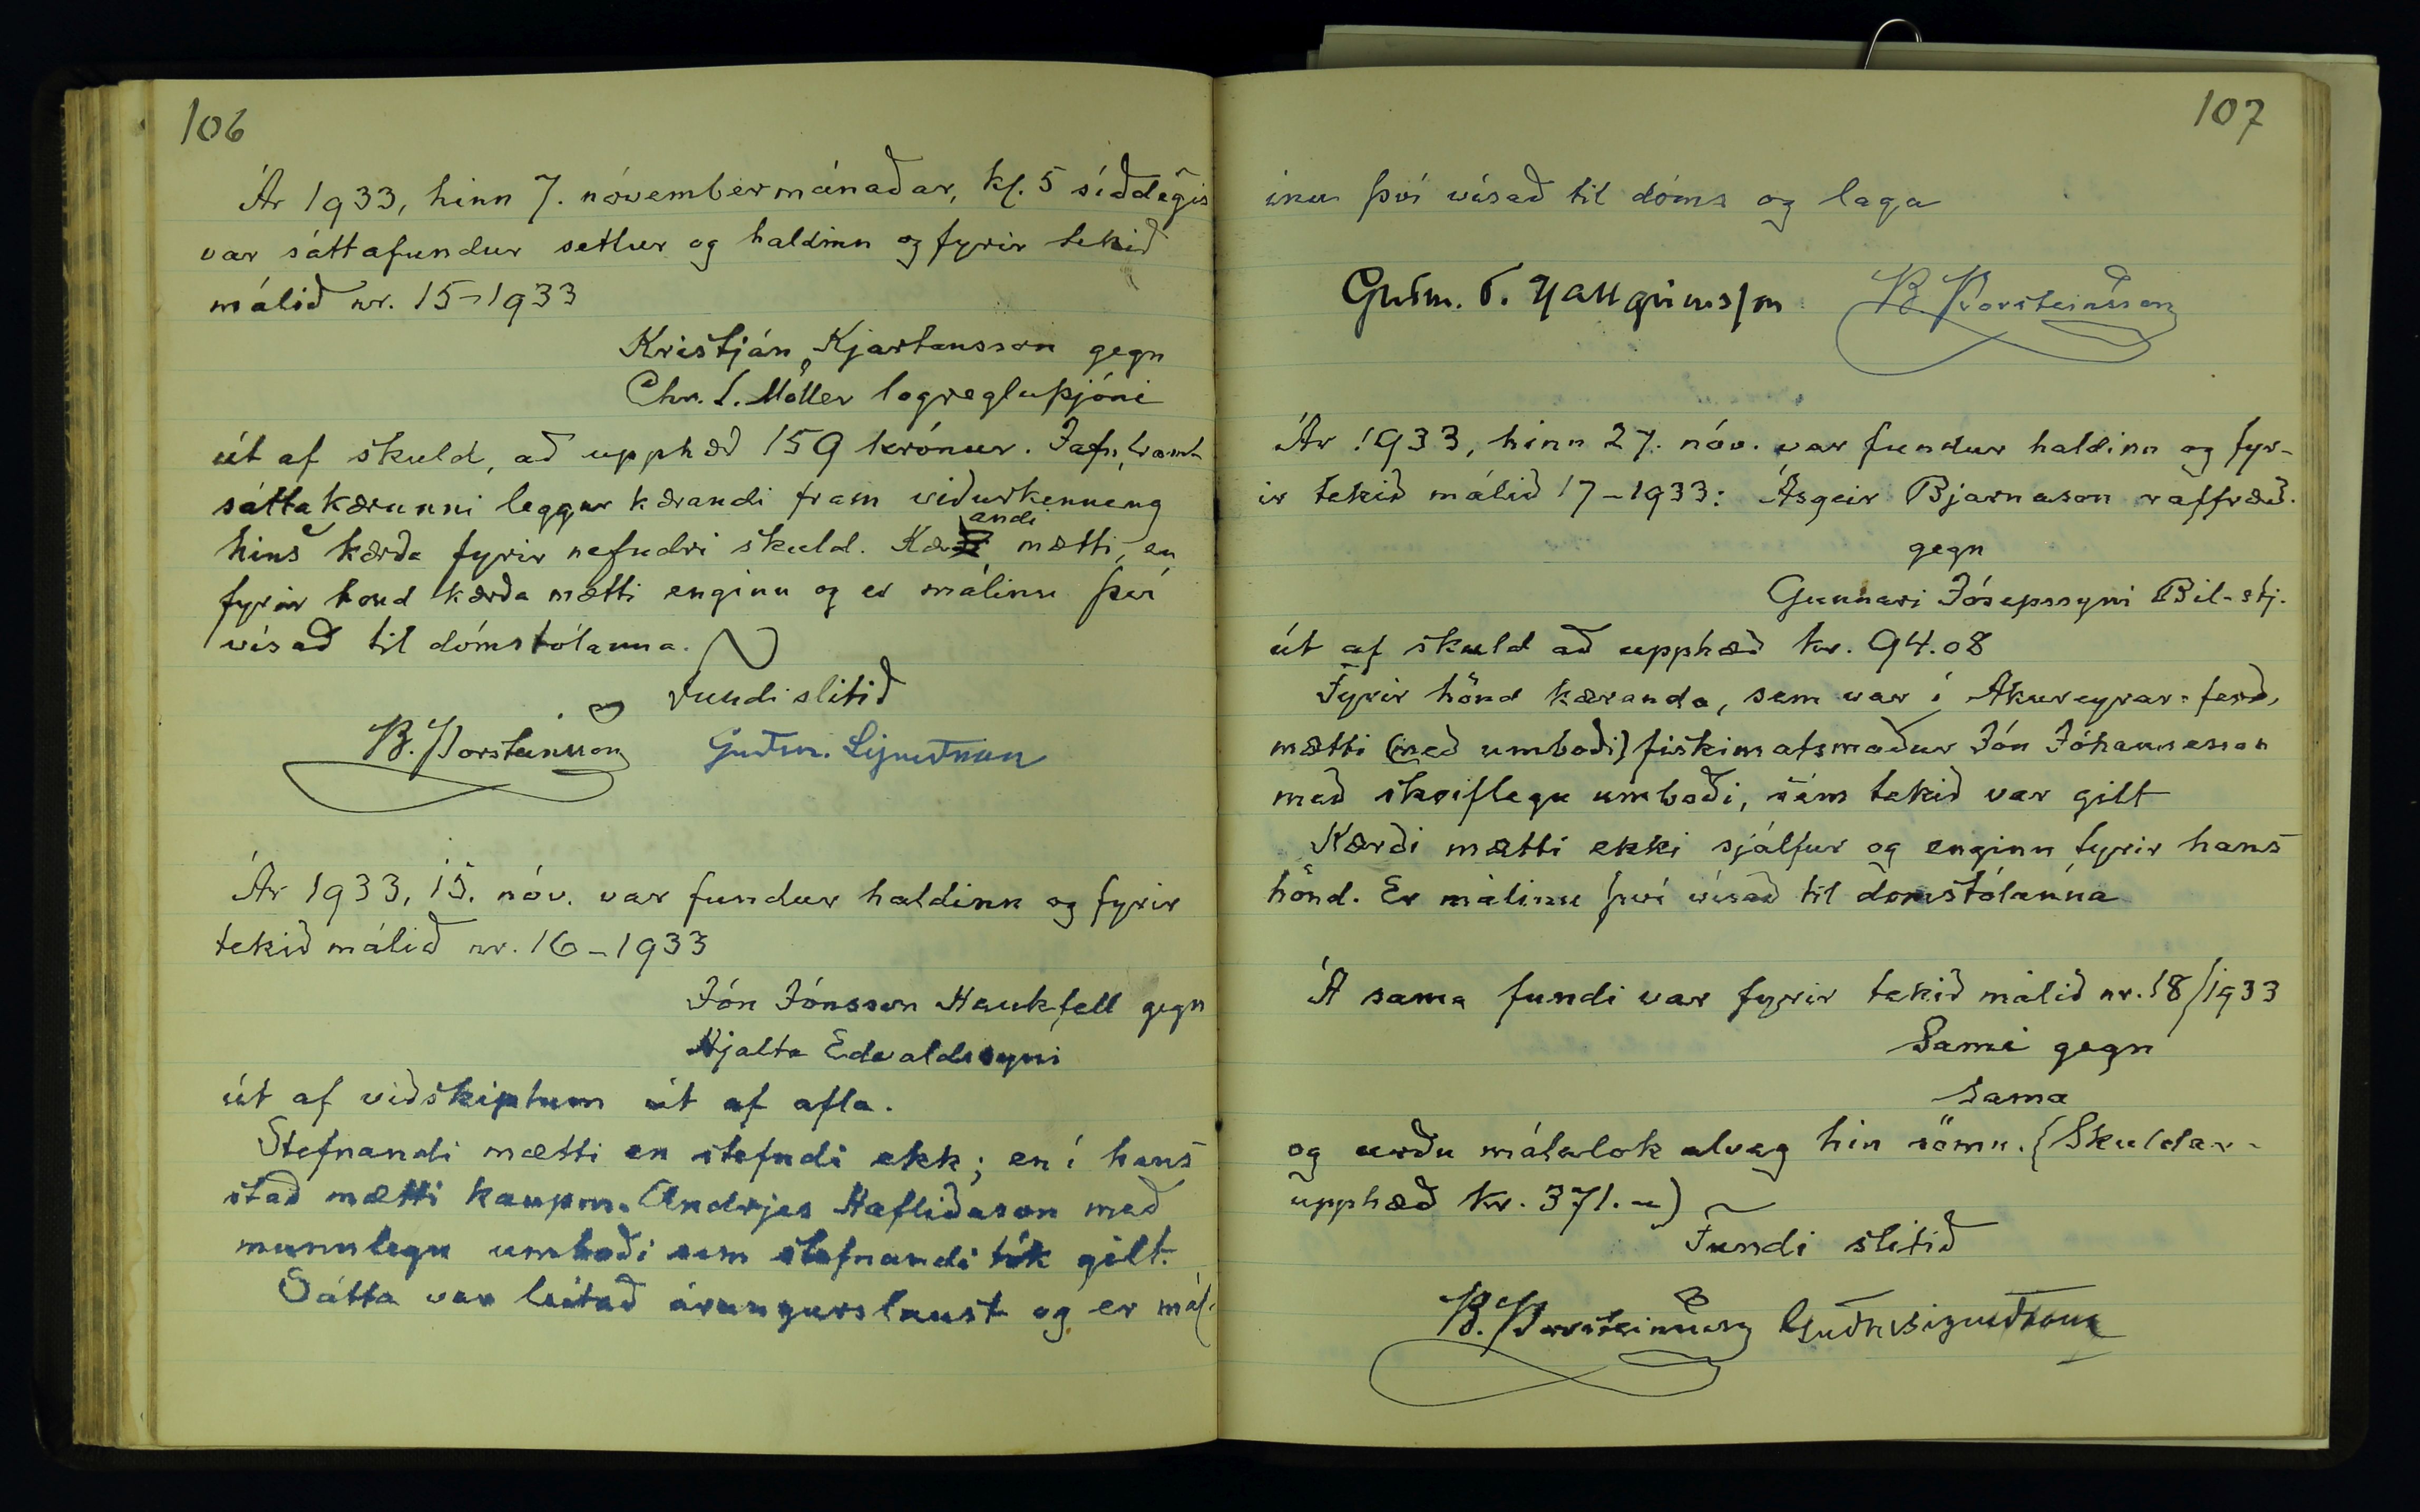 106
Ár 1933, hinn 7. nóvembermánaðar, kl. 5 síðdegis
var sáttafundur settur og haldinn og fyrir tekið
málið nr. 15-1933
Kristján Kjartansson gegn
Chr. L. Möller lögregluþjóni
út af skuld, að upphæð 159 krónur. Jafnframt
sáttakærunni leggur kærandi fram viðurkenneng
hins kærða fyrir nefndri skuld. Kærandi mætti, en
fyrir hönd kærða mætti enginn og er málinu því
vísað til dómstólanna.
Fundi slitið
B. Þorsteinsson Guðm. Sigurðsson
Ár 1933, 15. nóv. var fundur haldinn og fyrir
tekið málið nr. 16-1933
Jón Jónsson Haukfell gegn
Hjalta Edvaldssyni
út af viðskiptum út af afla.
Stefnandi mætti en stefndi ekk; en í hans
stað mætti kaupm. Andrjes Hafliðason með
munnlegu umboði sem stefnandi tók gilt.
Sátta var leitað árangurslaust og er mál-
107
inu því vísað til dóms og laga
Guðm. T. Hallgrímsson B. Þorsteinsson
Ár 1933, hinn 27. nóv. var fundur haldinn og fyr-
ir tekið málið 17-1933: Ásgeir Bjarnason raffræð.
gegn
Gunnari Jósepssyni Bil-stj.
út af skuld að upphæð kr. 94.08
Fyrir hönd kæranda, sem var í Akureyrar-ferð,
mætti (með umboði) fiskimatsmaður Jón Jóhannesson
með skriflegu umboði, sem tekið var gilt
Kærði mætti ekki sjálfur og enginn fyrir hans
hönd. Er málinu því vísað til domstólanna
Á sama fundi var fyrir tekið málið nr. 18/1933
Sami gegn
sama
og urðu málalok alveg hin sömu. (Skuldar-
upphæð kr. 371.-)
Fundi slitið
B. Þorsteinsson Guðm Sigurðsson